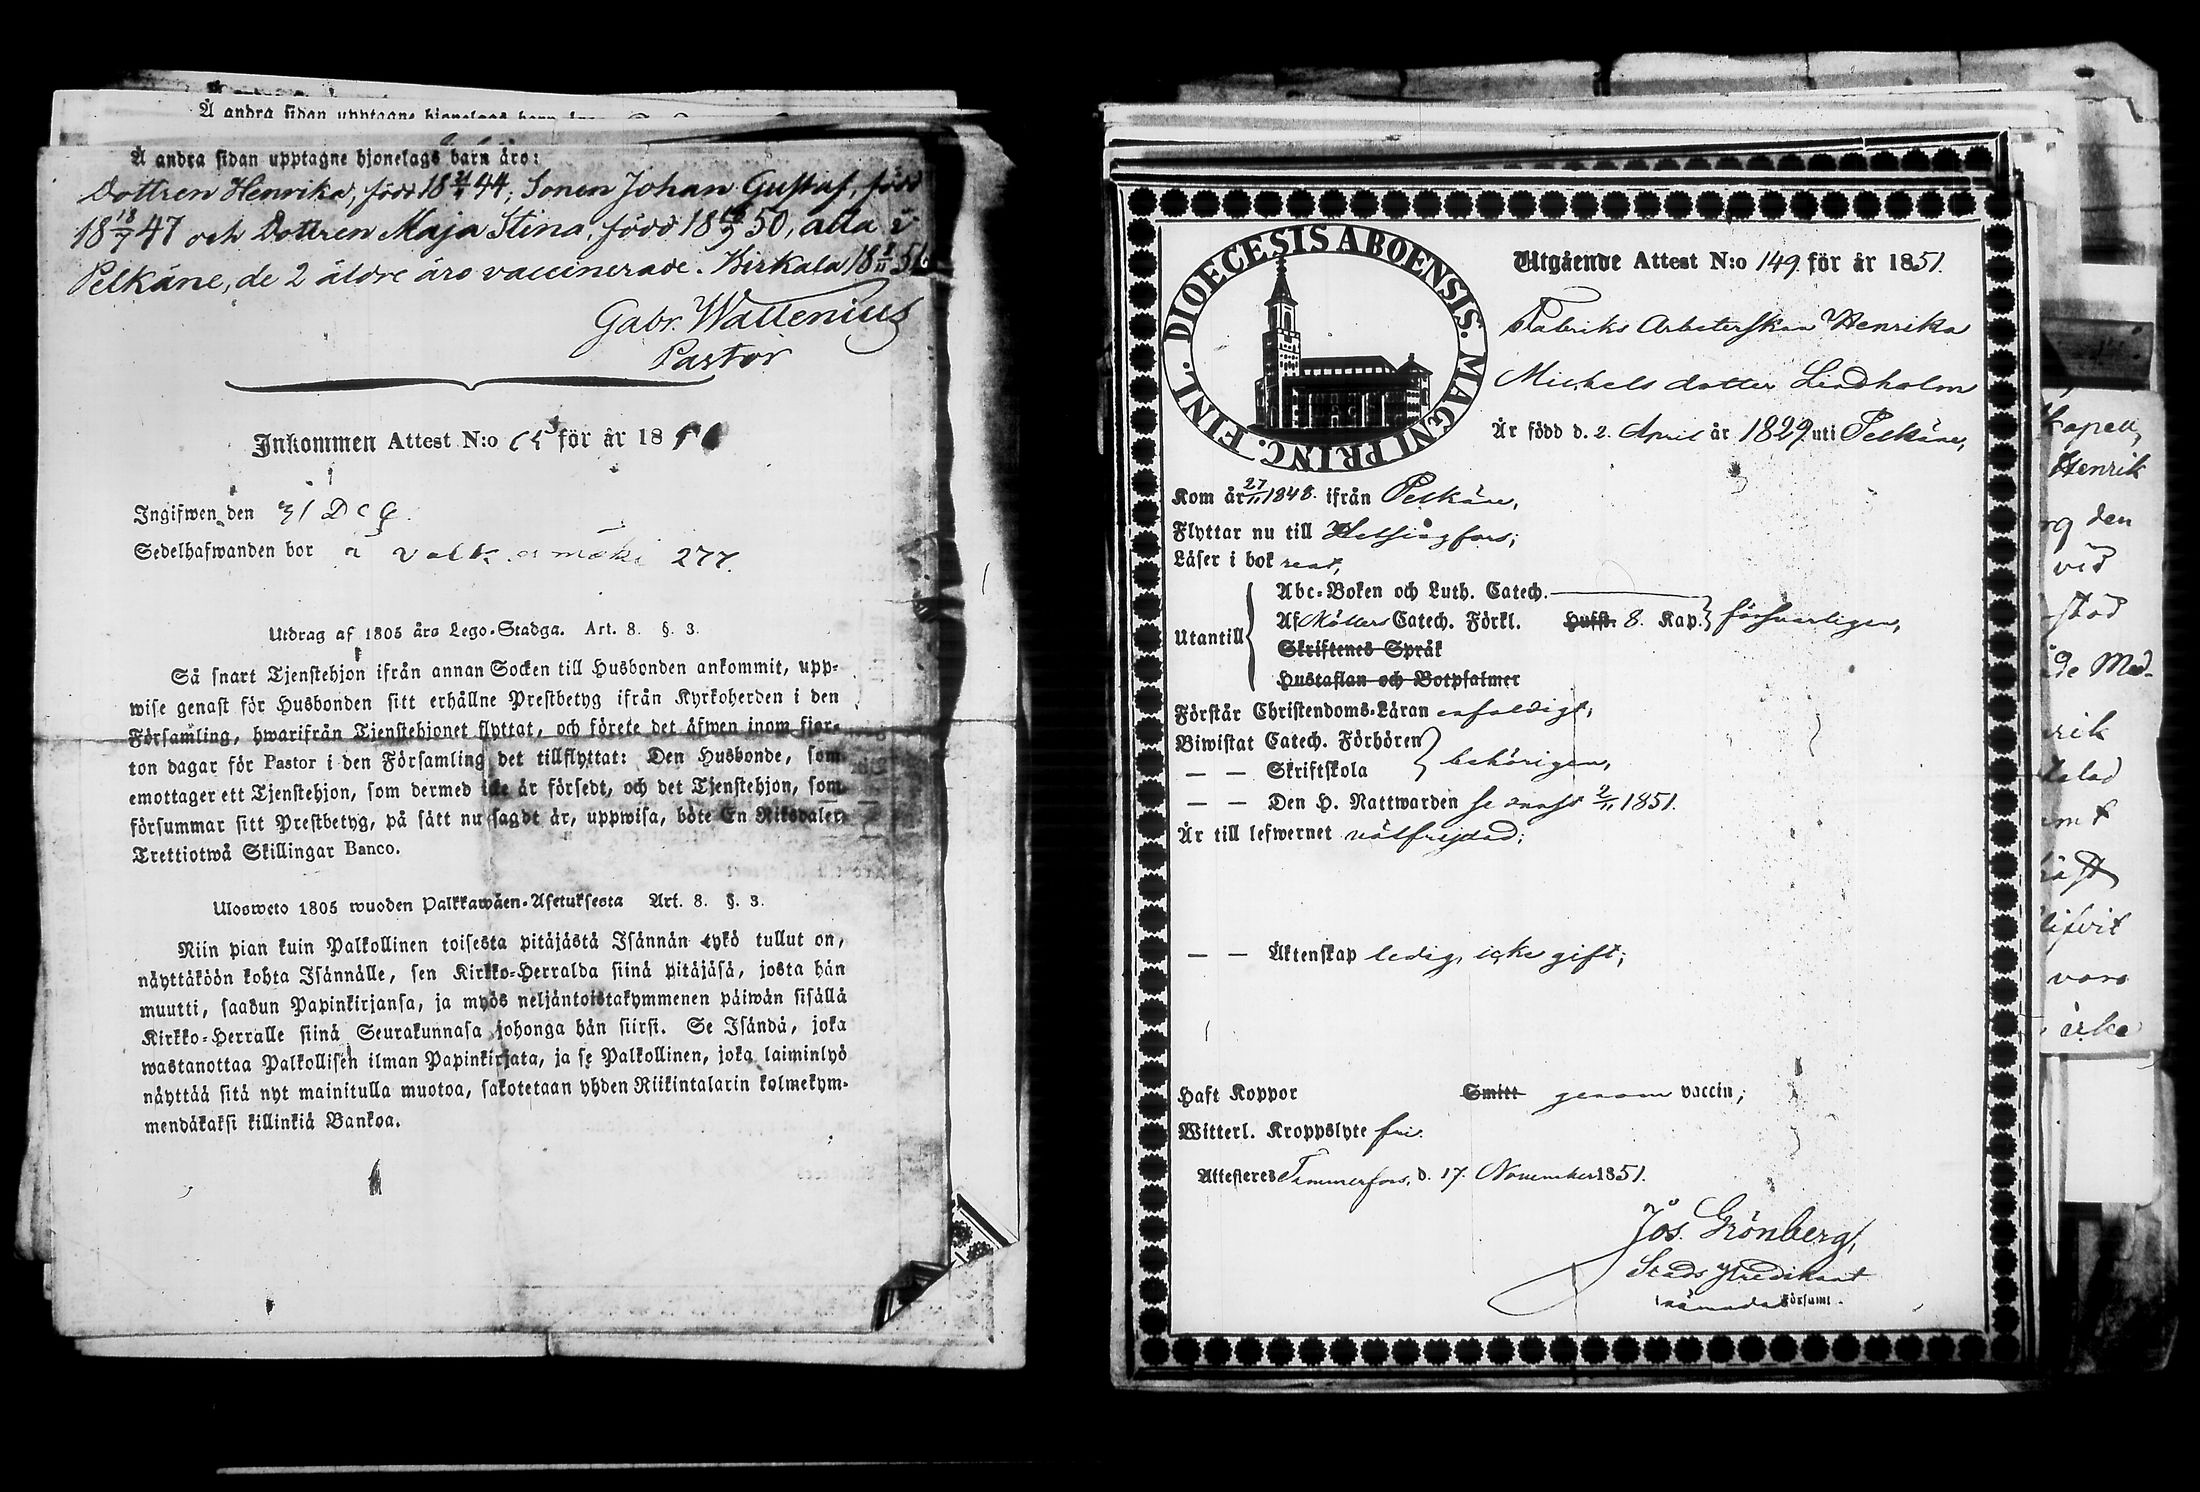 Å andra sidan upptagne hjonelags barn äro:
Dottren Henrika, född 18 21/4 44, Sonen Johan Gustaf, född
18 18/7 47 och Dottren Maja Stina, född 50, alla i
Pelkäne, de 2 äldre äro vaccinerade. Birkala 18 8/11 51.
Gabr. Wallenius
Pastor
Inkommen Attest N:o för år 18
Ingifwen den 31 Dec
Sedelhafwanden bor å 277.
Utdrag af 1805 års Lego-Stadga. Art. 8. §. 3.
Så snart Tjenstehjon ifrån annan Socken till Husbonden ankommit, upp-
wise genast för Husbonden sitt erhållne Prestbetyg ifrån Kyrkoherden i den
Församling, hwarifrån Tjenstehjonet flyttat, och förete det äfwen inom fjor-
ton dagar för Pastor i den Församling det tillflyttat: Den Husbonde, som
emottager ett Tjenstehjon, som dermed icke är försedt, och det Tjenstehjon, som
försummar sitt Prestbetyg, på sätt nu sagdt är, uppwisa, böte En Riksdaler
Trettiotwå Skillingar Banco.
Ulosweto 1805 wuoden Palkkawäen-Asetuksesta Art. 8. §. 3.
Niin pian kuin Palkollinen toisesta pitäjästä Isännän tykö tullut on,
näyttäköön kohta Isännälle, sen Kirkko-Herralda siinä pitäjäsä, josta hän
muutti, saadun Papinkirjansa, ja myös neljäntoistakymmenen päiwän sisällä
Kirkko-Herralle siinä Seurakunnasa johonga hän siirsi. Se Isändä, joka
wastanottaa Palkollisen ilman Papinkirjata, ja se Palkollinen, joka laiminlyö
näyttää sitä nyt mainitulla muotoa, sakotetaan yhden Riikintalarin kolmekym-
mendäkaksi killinkiä Bankoa.
DIOECESIS ABOENSIS. MAGNI PRINC. FINL.
Utgående Attest N:o 149. för år 1851.
Fabriks Arbeterskan Henrika
Michels dotter Lindholm
Är född d. 2. April år 1829. uti Pelkäne,
Kom år 27/11 1848. ifrån Pelkäne,
Flyttar nu till Helsingfors;
Läser i bok rent,
Utantill
Abc-Boken och Luth. Catech.
Af Möllers Catech. Förkl. Hufst. 8. Kap. försvarligen,
Skriftenes Språk
Hustaflan och Botpsalmer
Förstår Christendoms-Läran enfaldigt;
Biwistat Catech. Förhören
— — Skriftskola behörigen,
— — Den H. Nattwarden senast 2/11 1851.
Är till lefwernet välfrejdad;
— — Äktenskap ledig, icke gift;
Haft Koppor Smitt genom vaccin;
Witterl. Kroppslyte fri.
Attesteres Tammerfors, d. 17. November 1851.
Jos. Grönberg,
Stads Predikant
församl.
Henrik
den
vid